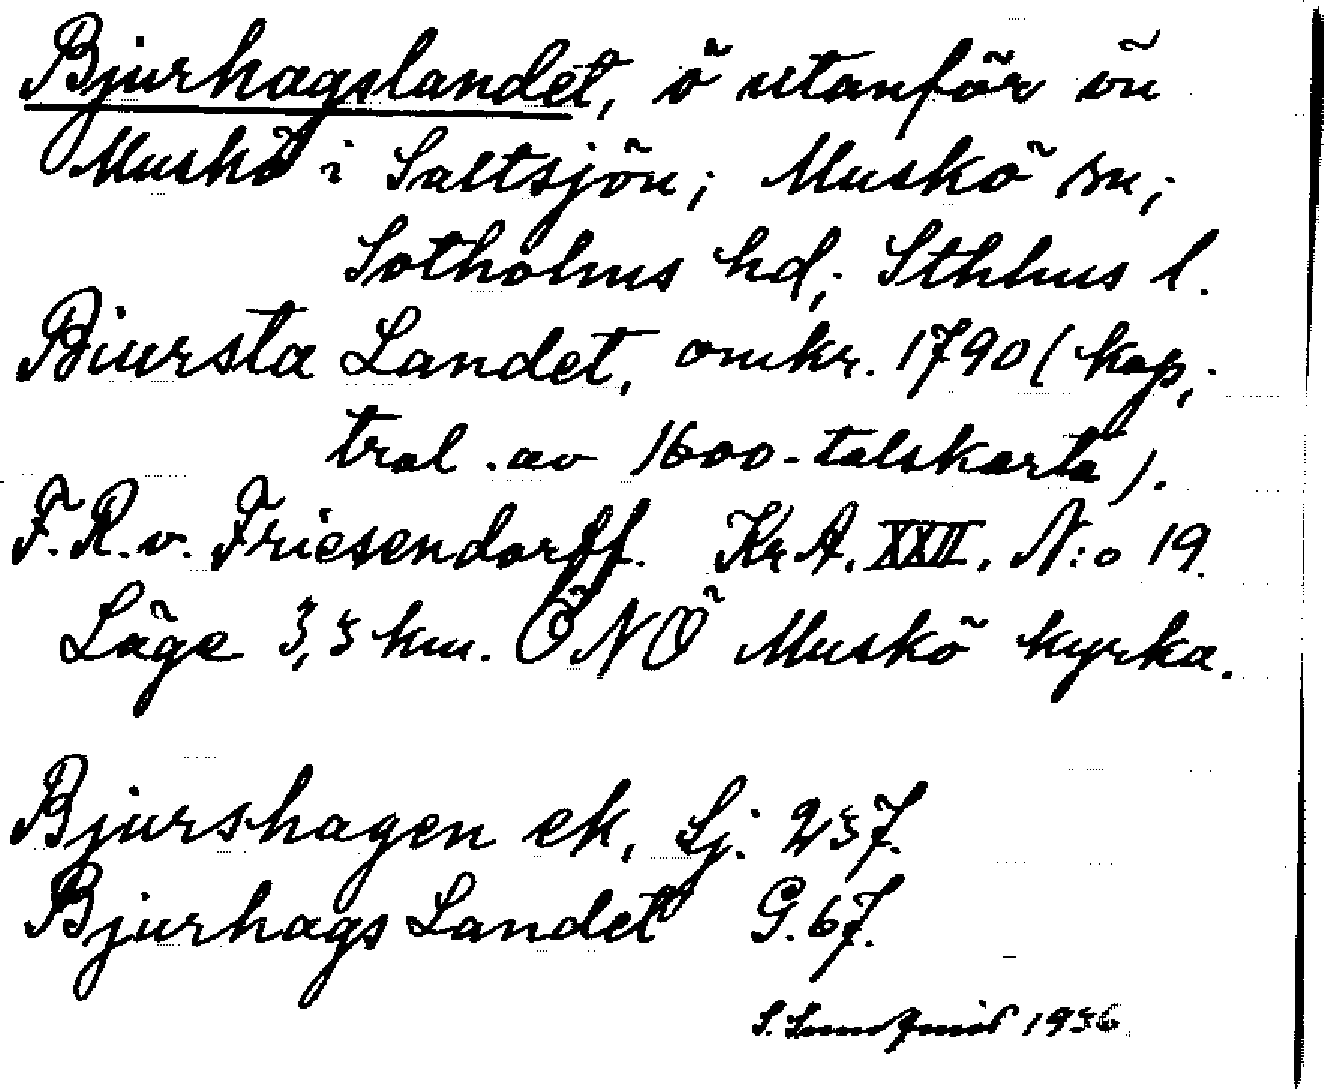 Bjurhagslandet, ö utanför ön
Muskö i Saltsjön; Muskö sn;
Sotholms hd; Sthlms l.
Biursta Landet, omkr. 1790 (kop,
trol. av 1600-talskarta).
F.R.v. Friesendorff. Kr.A. XXII. N:o 19.
Läge 3,5 km. ÖNÖ Muskö kyrka.
Bjurshagen ek, Sj. 257.
Bjurhags Landet G.67.
S. Lundqvist 1936